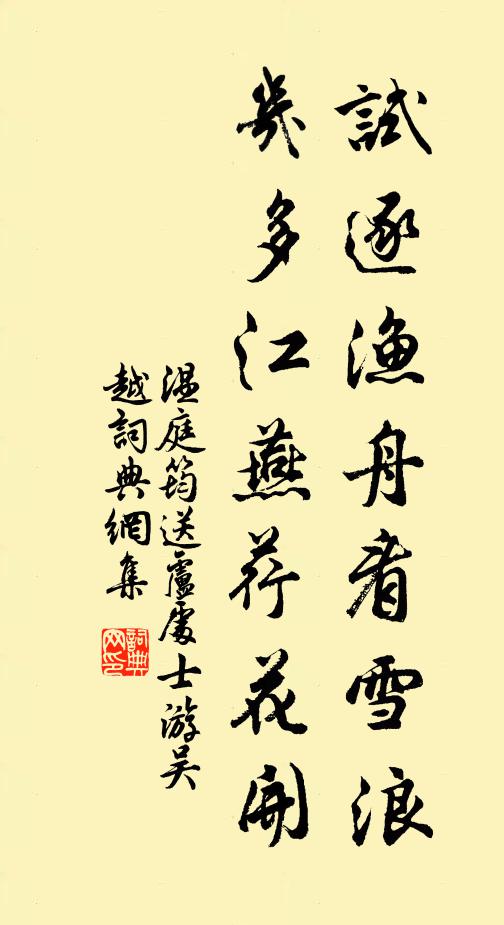 試逐漁舟看雪浪
幾多江燕荇花開
溫庭筠送盧處士游吳
越詞典網集
詞典
网印